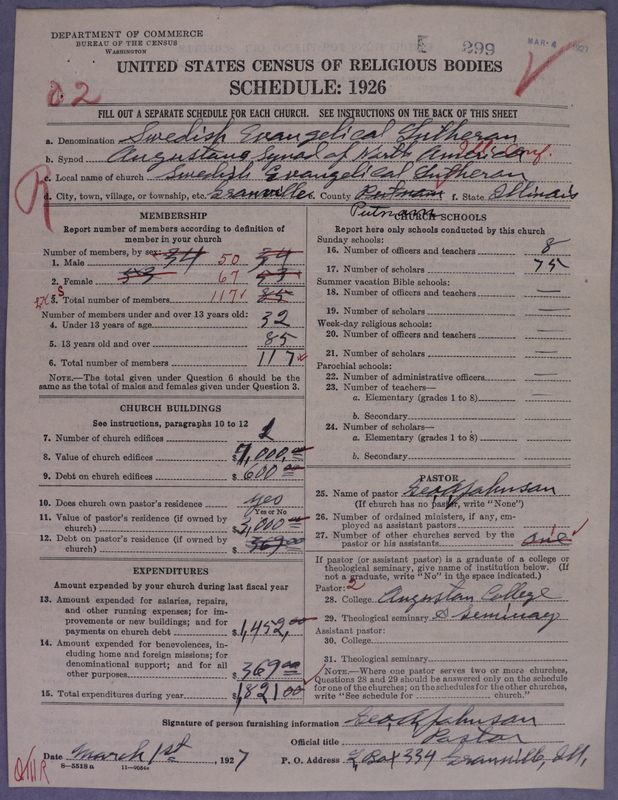 DEPARTMENT OF COMMERCE
BUREAU OF THE CENSUS
WASHINGTON
299
MAR-4 1927
UNITED STATES CENSUS OF RELIGIOUS BODIES
SCHEDULE: 1926
FILL OUT A SEPARATE SCHEDULE FOR EACH CHURCH. SEE INSTRUCTIONS ON THE BACK OF THIS SHEET
a. Denomination Swedish Evangelical Lutheran
b. Synod Augustana Synod of North America
c. Local name of church Swedish Evangelical Lutheran
d. City, town, village, or township, etc. Granville e. County Putnam f. State Illinois
Putnam
MEMBERSHIP
Report number of members according to definition of
member in your church
Number of members, by sex:
1. Male 34 50 34
2. Female 53 67 53
3. Total number of members 117 85
Number of members under and over 13 years old:
4. Under 13 years of age 32
5. 13 years old and over 85
6. Total number of members 117
NOTE.—The total given under Question 6 should be the
same as the total of males and females given under Question 3.
CHURCH BUILDINGS
See instructions, paragraphs 10 to 12
7. Number of church edifices 1
8. Value of church edifices $ 7,000.00
9. Debt on church edifices $ 600 00
10. Does church own pastor's residence yes
Yes or No
11. Value of pastor's residence (if owned by
church) $ 3,000 00
12. Debt on pastor's residence (if owned by
church) $ 369 00
EXPENDITURES
Amount expended by your church during last fiscal year
13. Amount expended for salaries, repairs,
and other running expenses; for im-
provements or new buildings; and for
payments on church debt $ 1,452.00
14. Amount expended for benevolences, in-
cluding home and foreign missions; for
denominational support; and for all
other purposes $ 369 00
15. Total expenditures during year $ 1,821 00
CHURCH SCHOOLS
Report here only schools conducted by this church
Sunday schools:
16. Number of officers and teachers 8
17. Number of scholars 75
Summer vacation Bible schools:
18. Number of officers and teachers —
19. Number of scholars —
Week-day religious schools:
20. Number of officers and teachers —
21. Number of scholars —
Parochial schools:
22. Number of administrative officers —
23. Number of teachers—
a. Elementary (grades 1 to 8)
b. Secondary
24. Number of scholars—
a. Elementary (grades 1 to 8)
b. Secondary
PASTOR
25. Name of pastor Geo A Johnson
(If church has no pastor, write "None")
26. Number of ordained ministers, if any, em-
ployed as assistant pastors
27. Number of other churches served by the
pastor or his assistants one
If pastor (or assistant pastor) is a graduate of a college or
theological seminary, give name of institution below. (If
not a graduate, write "No" in the space indicated.)
Pastor: 2
28. College Augustan College
29. Theological seminary & Seminary
Assistant pastor:
30. College
31. Theological seminary
NOTE.—Where one pastor serves two or more churches,
Questions 28 and 29 should be answered only on the schedule
for one of the churches; on the schedules for the other churches,
write "See schedule for church."
Signature of person furnishing information Geo A Johnson
Official title Pastor
Date March 1st, 1927 P. O. Address Box 334 Granville, Ill,
8—5518 a 11—9654a